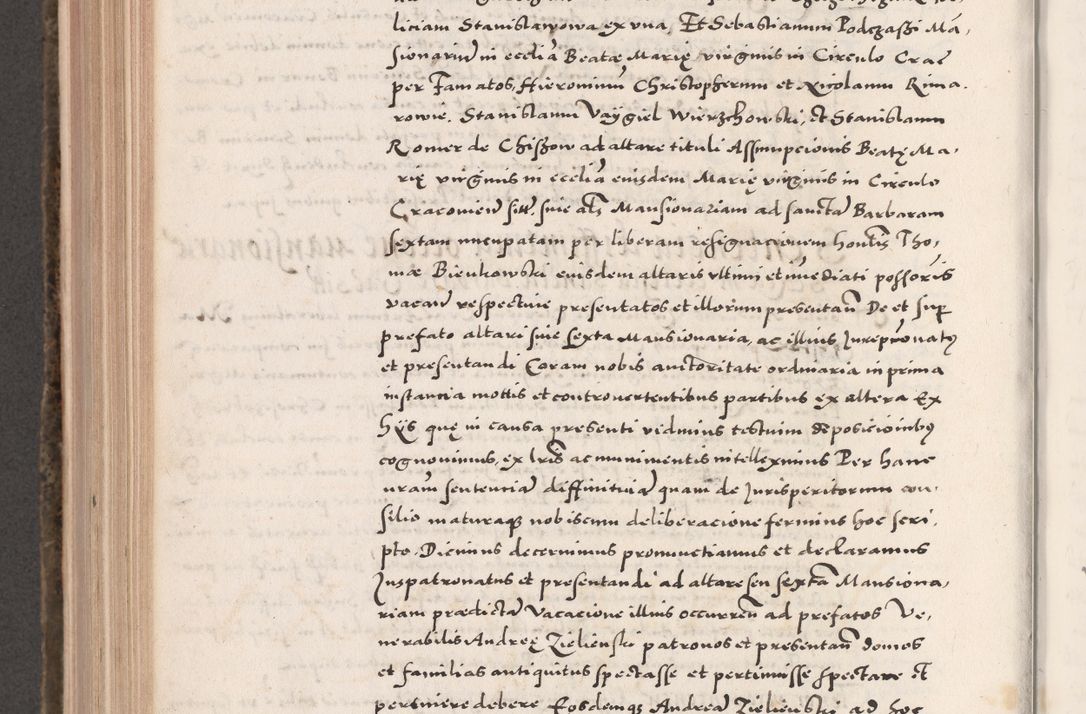 liciam Stanislawowa ex vna, Et Sebastianum Podczaßi Ma-
sionariũ in ecclia Beatę Marię virginis in Circulo Crac̃
per Famatos, Hieronimũ Christopherum et Nicolaum Rima-
rowie, Stanislaum Vaÿgiel Wierzchowski, et Stanislaum
Romer de Chißow ad altare tituli Assumpcionis Beatę Ma-
rię virginis in ecclia eiusdem Marię virginis in Circulo
Cracouien̄ sitt̃, siue als̃ Mansionariam ad sanctã Barbaram
sextam nuncupatam per liberam resignacionem honłis Tho-
mæ Bienkowski eiusdem altaris vltimi et im̃ediati possoris
vacan̄ respectiue presentatos et illorum presentan̄ De et sup
prefato altari siue sexta Mansionaria, ac illius Jurepr̃onatq
et presentandi Coram nobis auctoritate ordinaria in prima
instantia motis et controuertentibus partibus ex altera Ex
hÿs quę in causa presenti vidimus testium depositioinbq
cognouimus, ex lr̃is ac munimentis intelleximus Per hanc
nr̃am sententiã diffinitiuã quam de Jurisperitorum con-
silio maturaqz nobiscum deliberacione ferimus hoc scri-
pto. Dicimus decernimus pronunctiamus et declaramus
Juspatronatus et presentandi ad altare seu sextã Mansiona-
riam prædictã vacacione illius occurren̄ ad prefatos Ve-
nerabilis Andreę Zielienski patronos et presentan̄ domos
et familias antiquitus spectasse et pertinuisse spectare et
pertinere debere Eosdemqz Andreã Zielienski ad hoc